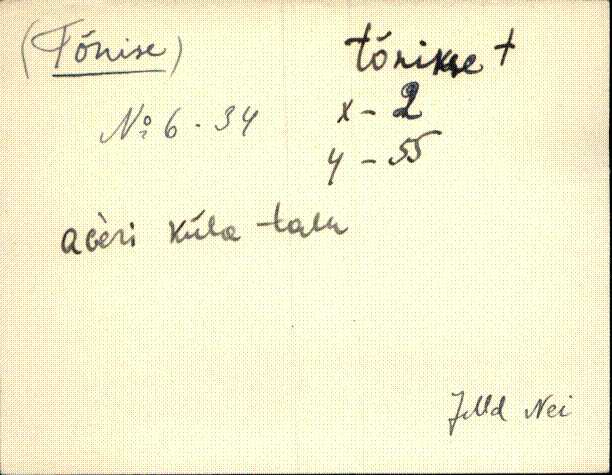 (Tõnise) tõnikse +
№ 6 - 34 x - 2
y - 55
ačeri küla talu
Nei